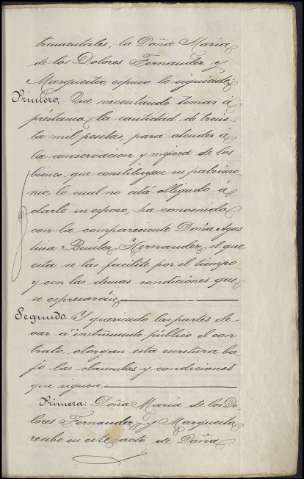 la Doña Maria
de los Dolores Fernandez y
Margueite, espuso lo siguiente
Primero, Que necesitando tomar á
préstamo la cantidad de trein-
ta mil pesetas, para atender á
la conservacion y mejora de los
bienes que constituyen su patrimo-
nio, lo cual no está obligado á
darle su esposo, ha convenido
con la compareciente Doña Agus
tina Benita Hernandez, el que
esta se las facilite por el tiempo
y con las demas condiciones que
se espresarán
Segundo. Y queriendo las partes ele-
var a instrumento público el con
trato, otorgan esta escritura ba
jo las clausulas y condiciones
que siguen
Primera: Doña Maria de los Do
lores Fernandez y Margueite
recibe en este acto de Doña